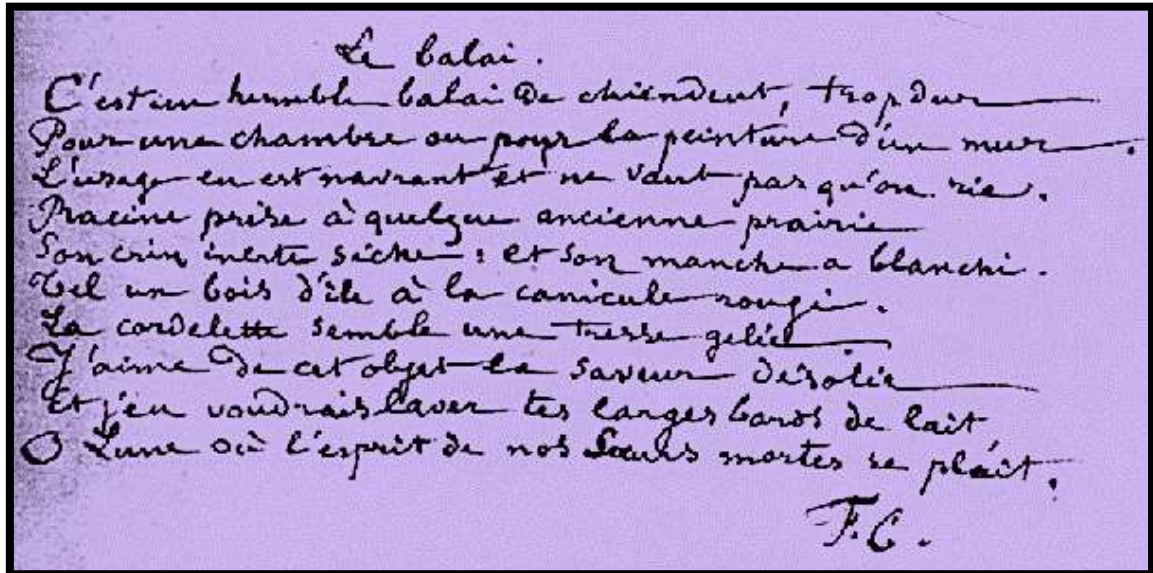 Le balai.
C'est un humble balai de chiendent, trop dur
Pour une chambre ou pour la peinture d'un mur.
L'usage en est navrant et ne vaut pas qu'on rie.
Racine prise à quelque ancienne prairie
Son crin inerte sèche : et son manche a blanchi.
Tel un bois d'île à la canicule rougi.
La cordelette semble une tresse gelée
J'aime de cet objet la saveur désolée
Et j'en voudrais laver tes larges bords de lait,
O Lune où l'esprit de nos Sœurs mortes se plaît.
F. C.